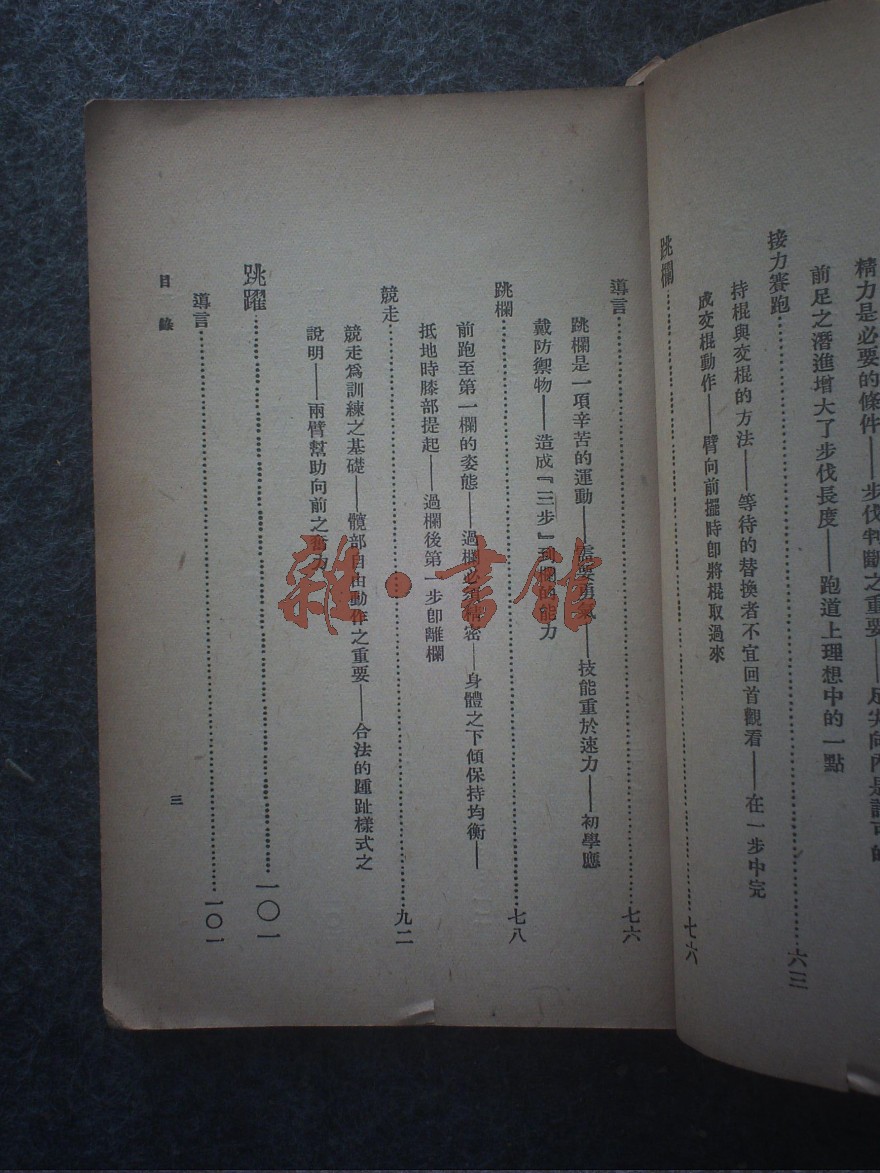 精力是必要的條件——步伐判斷之重要——足尖向內是許可的
前足之潛進增大了步伐長度——跑道上理想中的一點
接力賽跑……六三
持棍與交棍的方法——等待的替換者不宜回首觀看——在一步中完
成交棍動作——臂向前擺時卽將棍取過來
跳欄……七六
導言……七六
跳欄是一項辛苦的運動——需要勇氣——技能重於速力——初學應
戴防禦物——造成『三步』到欄的能力
跳欄……七八
前跑至第一欄的姿態——過欄必須精密——身體之下傾保持均衡——
抵地時膝部提起——過欄後第一步卽離欄
競走……九二
競走爲訓練之基礎——髖部自由動作之重要——合法的踵趾樣式之
說明——兩臂幫助向前之奮力
跳躍……一〇一
導言……一〇一
目錄
三
雜·書館